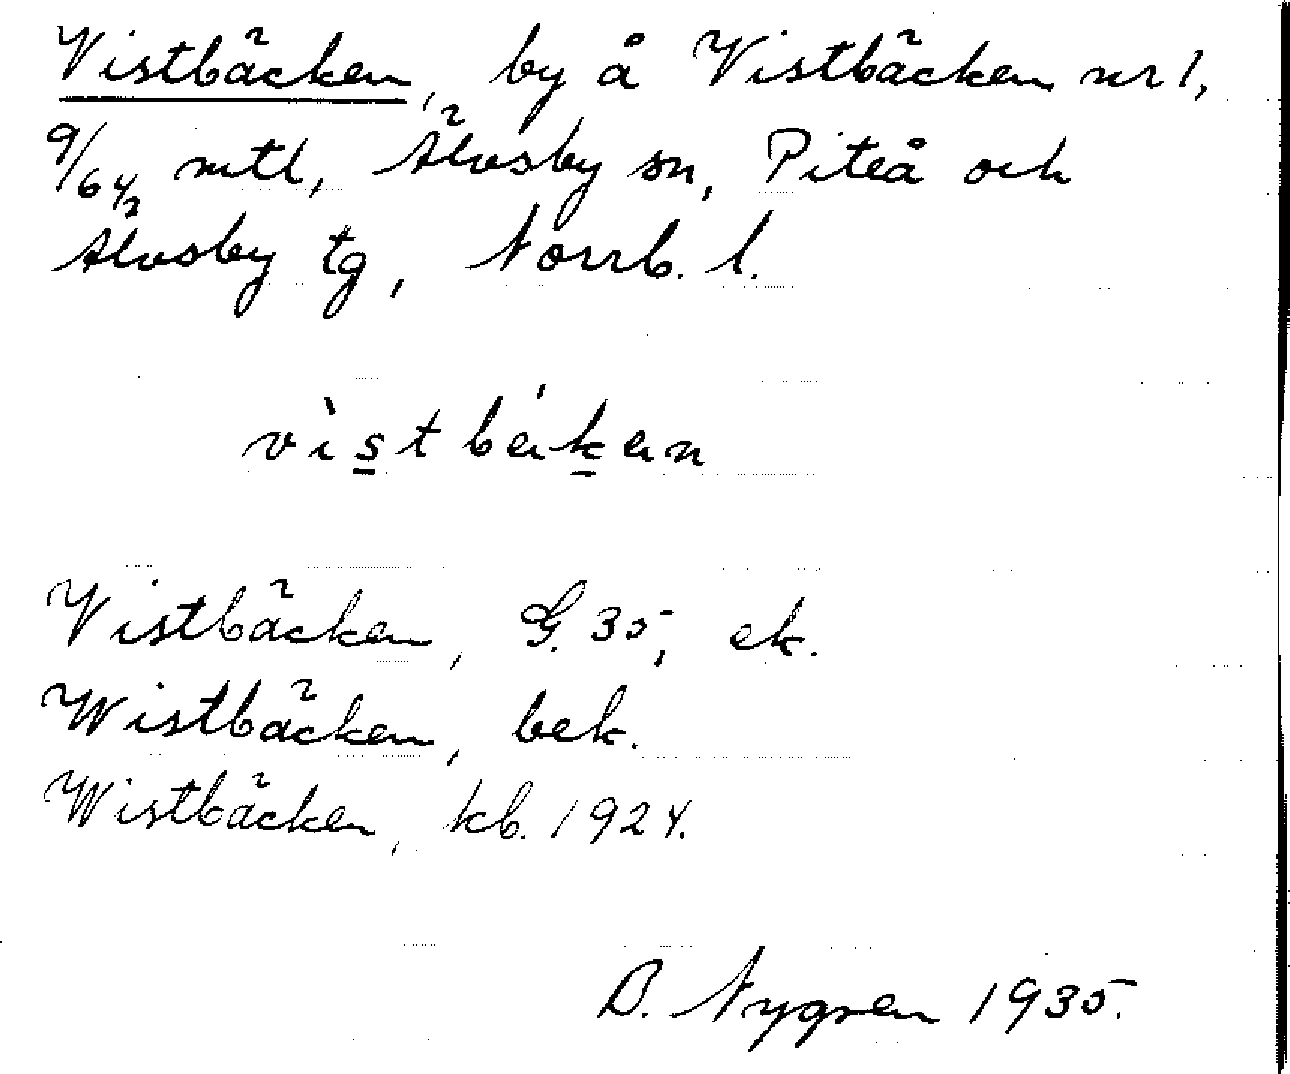 Vistbäcken, by å Vistbäcken nr 1,
9/64 mtl, Älvsby sn, Piteå och
Älvsby tg, Norrb. l.
vìstbä́ken
Vistbäcken, G. 35, ek.
Wistbäcken, bek.
Wistbäcken, kb. 1924.
B. Nygren 1935.